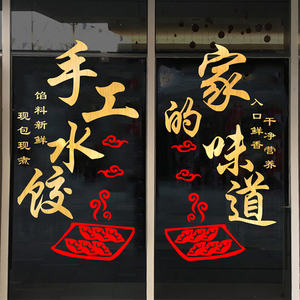 手工水饺
馅料新鲜
现包现煮
家的味道
入口鲜香
干净营养